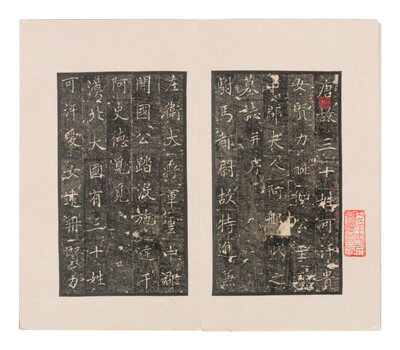 唐故三十姓可汗貴
女賢力毗伽公主
中郡夫人阿那氏之
墓誌并序
駙馬都尉故特進兼
左衛大將軍雲中郡
開國公踏沒施達干
阿史德覓覓
漠北大國有三十姓
可汗愛女建冊賢力